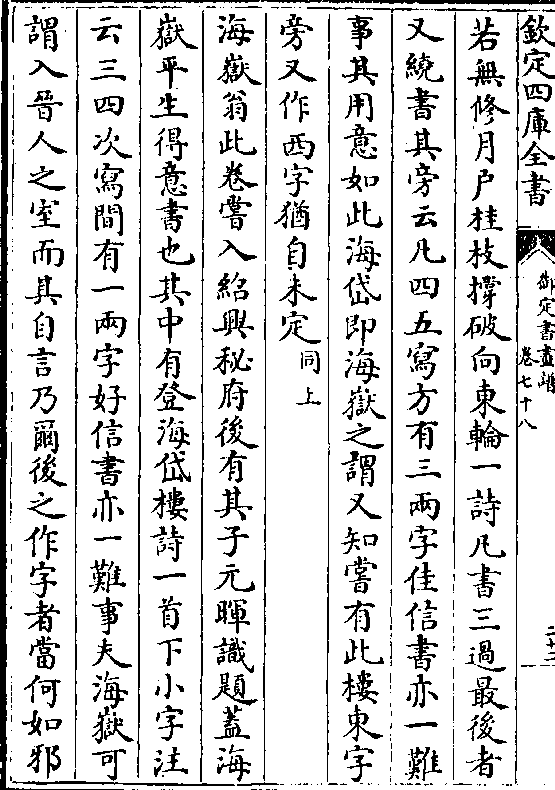 欽定四庫全書
御定書畫譜
卷七十八
若無修月戶桂枝撑破向東輪一詩凡書三過最後者
又繞書其旁云凡四五寫方有三兩字佳信書亦一難
事其用意如此海岱即海嶽之謂又知嘗有此樓東字
旁又作西字猶自未定同上
海嶽翁此卷嘗入紹興秘府後有其子元暉識題蓋海
嶽平生得意書也其中有登海岱樓詩一首下小字注
云三四次寫間有一兩字好信書亦一難事夫海嶽可
謂入晉人之室而其自言乃爾後之作字者當何如邪